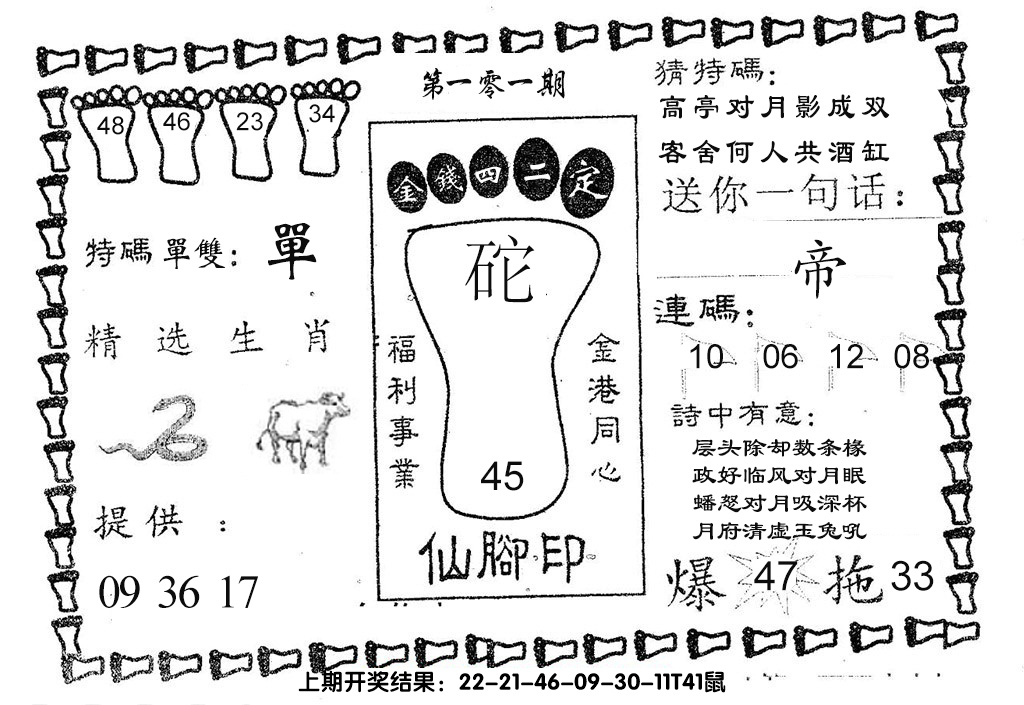 第一零一期
48 46 23 34
特碼單雙：單
精选生肖
提供：
09 36 17
金錢四二定
砣
福利事業
金港同心
45
仙腳印
猜特碼：
高亭对月影成双
客舍何人共酒缸
送你一句话：
帝
連碼：
10 06 12 08
詩中有意：
层头除却数条椽
政好临风对月眠
蟠怒对月吸深杯
月府清虚玉兔吼
爆 47 拖 33
上期开奖结果：22-21-46-09-30-11T41鼠